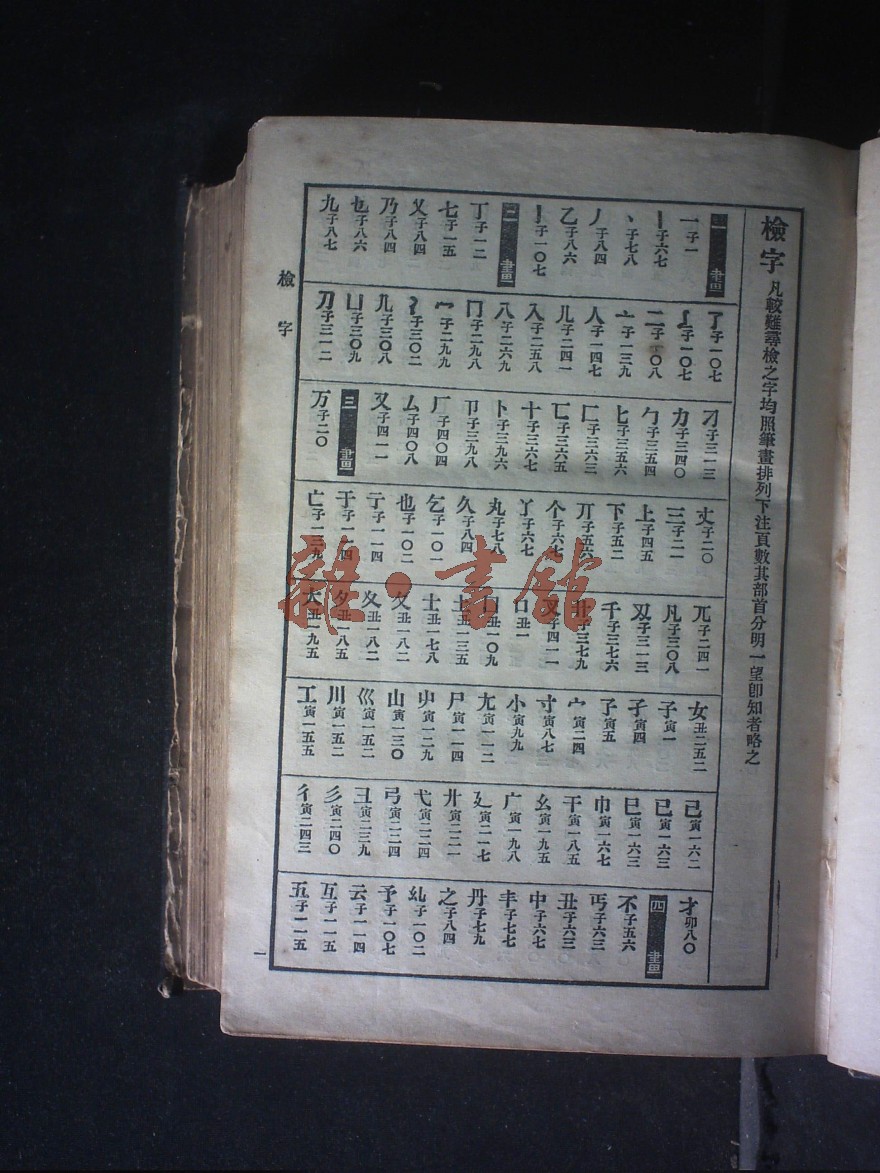 檢字 凡較難尋檢之字均照筆畫排列下注頁數其部首分明一望卽知者略之
一畫
一子一
丨子六七
丶子七八
丿子八四
乙子八六
亅子一〇七
二畫
丁子一二
七子一五
乂子八四
乃子八四
乜子八六
九子八七
了子一〇七
二子一〇八
亠子一三九
人子一四七
儿子二四一
入子二五八
八子二六九
冂子二九八
冖子二九九
冫子三〇二
几子三〇八
凵子三〇九
刀子三一二
刁子三一三
力子三四〇
勹子三五四
匕子三五六
匚子三六三
匸子三六五
十子三六七
卜子三九六
卩子三九九
厂子四〇四
厶子四〇八
又子四一一
三畫
万子二〇
丈子二〇
三子二一
上子四五
下子五二
丌子五六
个子六七
丫子六七
丸子七八
久子八四
乞子一〇一
也子一〇二
亍子一一四
于子一一四
亡子一三九
兀子二四一
凡子三〇八
刄子三一三
千子三七六
卄子三七九
叉子四一一
口丑一
囗丑一〇九
土丑一三五
士丑一七八
夂丑一八二
夊丑一八二
夕丑一八五
大丑一九五
女丑二五二
子寅一
孑寅四
孒寅五
宀寅二四
寸寅八七
小寅九九
尢寅一一二
尸寅一一四
屮寅一二九
山寅一三〇
巛寅一五二
川寅一五二
工寅一五五
己寅一六二
已寅一六三
巳寅一六三
巾寅一六七
干寅一八五
幺寅一九五
广寅一九八
廴寅二一七
廾寅二二一
弋寅二二四
弓寅二二四
彐寅二三九
彡寅二四〇
彳寅二四三
才卯八〇
四畫
不子五六
丐子六三
丑子六三
中子六七
丰子七七
丹子七九
之子八四
乣子一〇二
予子一〇七
云子一一四
互子一一五
五子一一五
檢字
一
雜·書館